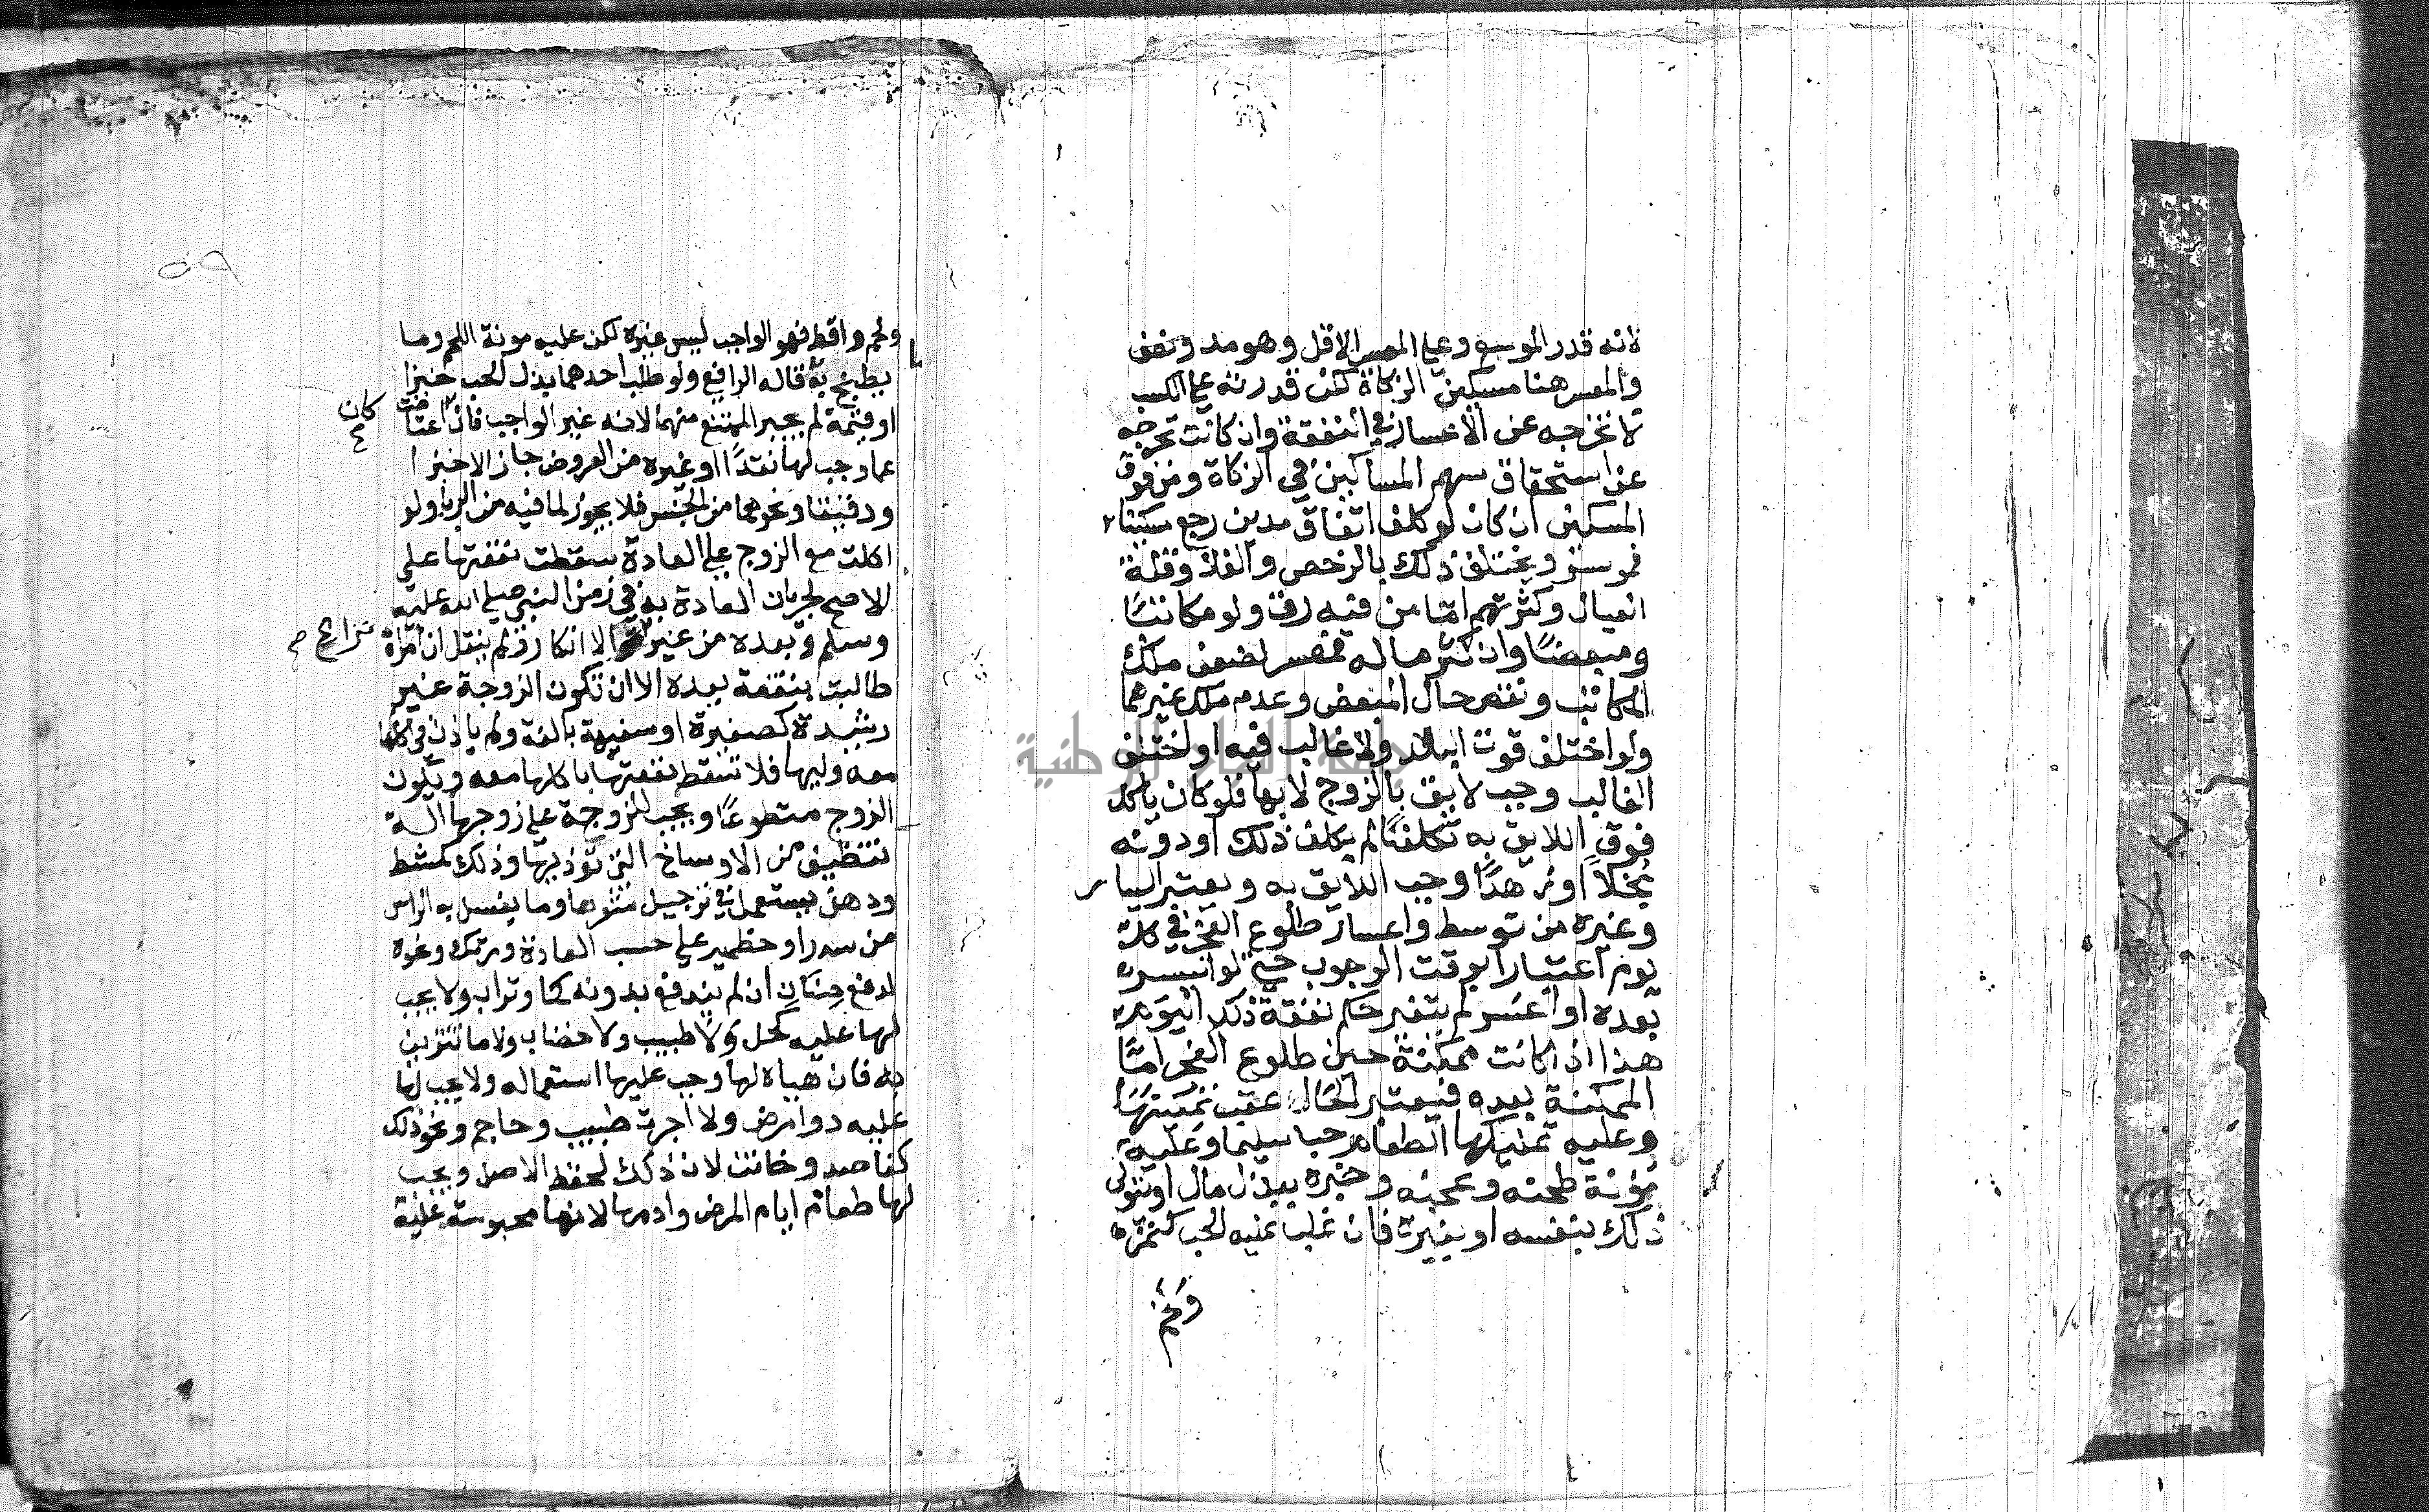 لانه قدر الموسر وعلى المعسر الاقل وهو مد ونصف
والمعسر هنا مسكين الزكاة لكن قدرته على الكسب
لا تخرجه عن الاعسار في النفقة وان كانت تخرجه
عن استحقاق سهم المساكين في الزكاة ومن فوق
المسكين ان كان لو كلف انفاق مدين رجع مسكينا
فموسر ويختلف ذلك بالرخص والغلا وقلة
العيال وكثرتهم اما من فيه رق ولو مكاتبا
ومبعضا وان كثر ماله فمعسر لضعف ملك
المكاتب ونقص حال المبعض وعدم ملك غيرهما
ولو اختلف قوت البلاد ولا غالب فيه او اختلف
الغالب وجب لايق بالزوج لا بها فلو كان ياكل
فوق اللايق به تكلفا لم يكلف ذلك او دونه
بخلا او زهدا وجب اللايق به ويعتبر اليسار
وغيره من توسط واعسار طلوع الفجر في كل
يوم اعتبارا بوقت الوجوب حتى لو ايسر
بعده او اعسر لم يتغير حكم نفقة ذلك اليوم
هذا اذا كانت ممكنة حين طلوع الفجر اما
الممكنة بعده فيعتبر الحال عقب تمكينها
وعليه تمليكها الطعام حبا سليما وعليه
مؤنة طحنه وعجنه وخبزه ببذل مال او يتولى
ذلك بنفسه او بغيره فان غلب غير الحب كتمر
ولحم
٥٩
ولحم واقط فهو الواجب ليس غيره لكن عليه مونة اللحم وما
يطبخ به قاله الرافعي ولو طلب احدهما بذل الحب خبزا
او قيمة لم يجبر الممتنع منهما لانه غير الواجب فان اعتاضت
كان
عما وجب لها نقدا او غيره من العروض جاز الا خبزا
ودقيقا ونحوهما من الجنس فلا يجوز لما فيه من الربا ولو
اكلت مع الزوج على العادة سقطت نفقتها على
الاصح لجريان العادة به في زمن النبي صلى الله عليه
وسلم وبعده من غير الا انكار ولم ينقل ان امراة
نزاع صح
طالبت بنفقة بعده الا ان تكون الزوجة غير
رشيدة كصغيرة او سفيهة بالغة ولم ياذن في اكلها
معه وليها فلا تسقط نفقتها باكلها معه ويكون
الزوج متطوعا ويجب للزوجة على زوجها الة
تنظيف من الاوساخ التي تؤذيها وذلك كمشط
ودهن يستعمل في ترجيل شعرها وما يغسل به الراس
من سدر او خطمير على حسب العادة ومرتك ونحوه
لدفع صنان ان لم يندفع بدونه كماء وتراب ولا يجب
لها عليه كحل ولا طبيب ولا خضاب ولا ما تتزين
به فان هياه لها وجب عليها استعماله ولا يجب لها
عليه دوا مرض ولا اجرت طبيب وحاجم ونحو ذلك
كفاصد وخاتن لان ذلك لحفظ الاصل ويجب
لها طعام ايام المرض وادمها لانها محبوسة عليه